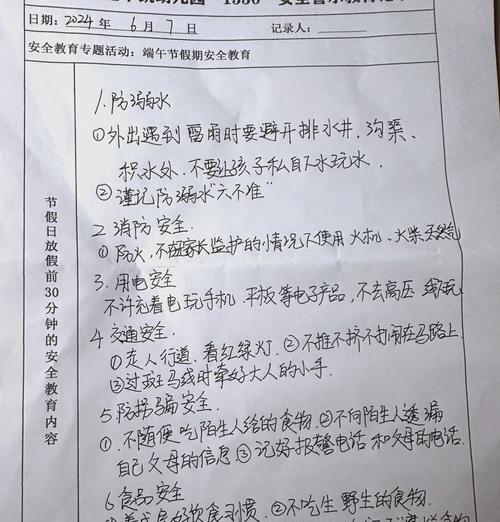 幼儿园"1530"安全警示教育记
日期：2024年 6 月 7 日
记录人：
安全教育专题活动：端午节假期安全教育
节假日放假前30分钟的安全教育内容
1.防溺水
①外出遇到雷雨时要避开排水井、沟渠、
积水处.不要让孩子私自下水玩水.
②谨记防溺水"六不准"
2 消防安全
①防火,不在家长监护的情况不使用火机、火柴天然气
3.用电安全
不许充着电玩手机 平板等电子产品,不去高压线玩
4 交通安全.
①走人行道、看红绿灯.②不推不挤不打闹在马路上.
③过斑马线时牵好大人的小手.
5防拐骗安全.
①.不随便吃陌生人给的食物.②不向陌生人透漏
自己父母的信息③记好报警电话和父母的电话.
6食品安全
①养成良好饮食习惯.②不吃生 野生的食物.